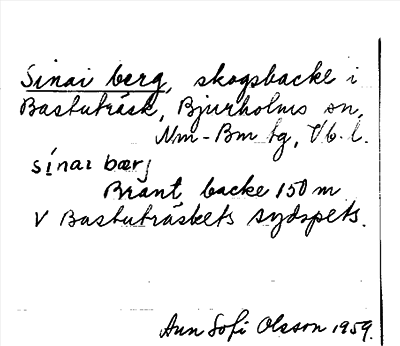 Sinai berg, skogsbacke i
Bastuträsk, Bjurholms sn,
Nm-Bm tg, Vb. l.
sínaɪ bærj
Brant backe 150 m
V Bastuträskets sydspets.
Ann Sofi Olsson 1959.